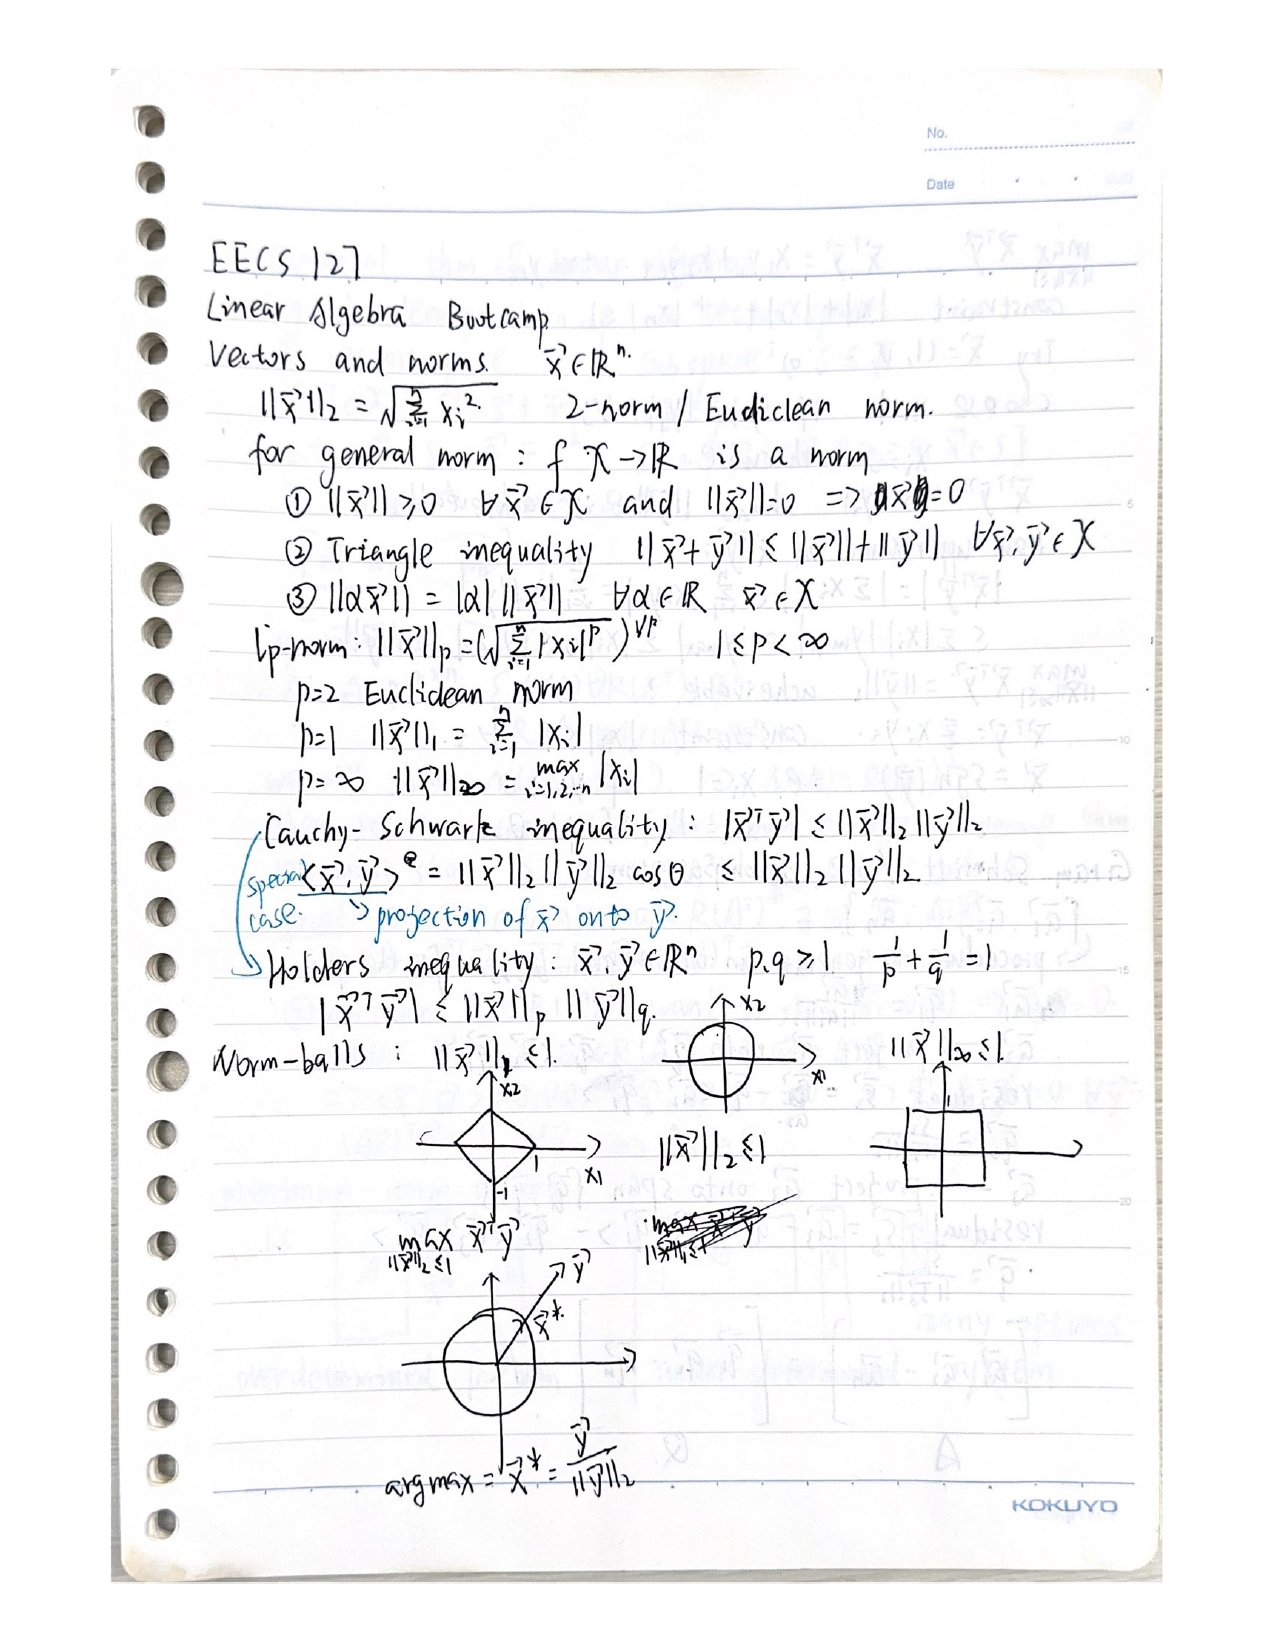 No.
Date
EECS 127
Linear Algebra Bootcamp
Vectors and norms. x⃗ ∈ ℝⁿ.
||x⃗||₂ = √(Σᵢ₌₁ⁿ xᵢ²) 2-norm / Eudiclean norm.
for general norm : f X → ℝ is a norm
① ||x⃗|| ≥ 0 ∀x⃗ ∈ X and ||x⃗|| = 0 => x⃗ = 0
② Triangle inequality ||x⃗ + y⃗|| ≤ ||x⃗|| + ||y⃗|| ∀x⃗, y⃗ ∈ X
③ ||αx⃗|| = |α| ||x⃗|| ∀α ∈ ℝ x⃗ ∈ X
lp-norm : ||x⃗||p = (√(Σᵢ₌₁ⁿ |xᵢ|^p))^(1/p) 1 ≤ p < ∞
p=2 Euclidean norm
p=1 ||x⃗||₁ = Σᵢ₌₁ⁿ |xᵢ|
p=∞ ||x⃗||∞ = max i=1,2,..n |xᵢ|
Cauchy-Schwartz inequality : |x⃗ᵀy⃗| ≤ ||x⃗||₂ ||y⃗||₂
special <x⃗, y⃗> = ||x⃗||₂ ||y⃗||₂ cosθ ≤ ||x⃗||₂ ||y⃗||₂
case. → projection of x⃗ onto y⃗.
Holders inequality : x⃗, y⃗ ∈ ℝⁿ p, q ≥ 1 1/p + 1/q = 1
|x⃗ᵀy⃗| ≤ ||x⃗||p ||y⃗||q.
Norm-balls : ||x⃗||₁ ≤ 1.
x₂
x₁
1
-1
x₂
x₁
||x⃗||₂ ≤ 1
||x⃗||∞ ≤ 1
1
max x⃗ᵀy⃗
||x⃗||₂ ≤ 1
y⃗
x⃗*
argmax = x⃗* = y⃗ / ||y⃗||₂
KOKUYO